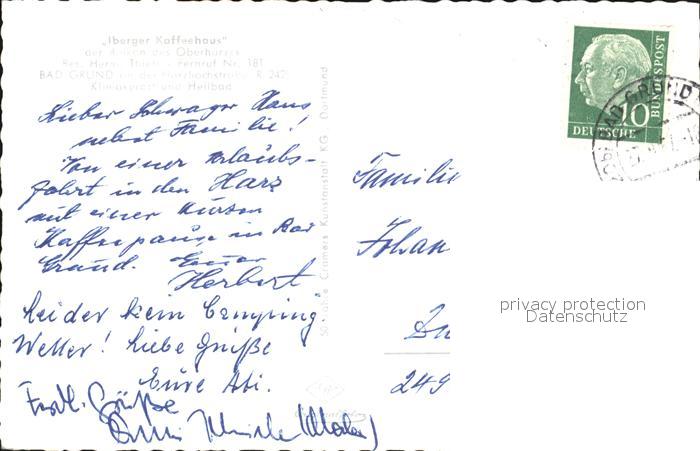 „Iberger Kaffeehaus"
der Balkon des Oberharzes
Bes. Herm. Thiele - Fernruf Nr. 181
BAD GRUND an der Harzhochstraße R 242
Klimakurort und Heilbad
Lieber Schwager Hans
nebst Familie!
Von einer Urlaubs-
fahrt in den Harz
mit einer kurzen
Kaffeepause in Bad
Grund. Euer
Herbert
Leider kein Camping
Wetter! Liebe Grüße
Eure Abi.
Frdl. Grüße
Cramers Kunstanstalt KG Dortmund
Familie
Johan
249
10
DEUTSCHE
BUNDESPOST
BAD GRUND
privacy protection
Datenschutz